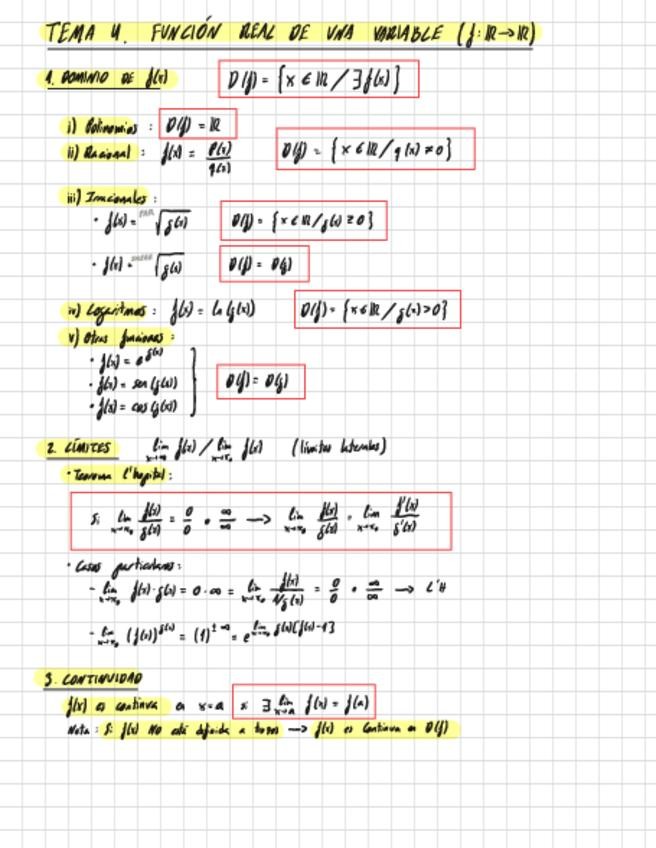 TEMA 4. FUNCIÓN REAL DE UNA VARIABLE (f: ℝ→ℝ)
1. DOMINIO DE f(x) D(f) = {x ∈ ℝ / ∃ f(x)}
i) Polinomios : D(f) = ℝ
ii) Racional : f(x) = P(x)/q(x) D(f) = {x ∈ ℝ / q(x) ≠ 0}
iii) Irracionales :
· f(x) = PAR√g(x) D(f) = {x ∈ ℝ / g(x) ≥ 0}
· f(x) = IMPAR√g(x) D(f) = D(g)
iv) Logaritmos : f(x) = ln(g(x)) D(f) = {x ∈ ℝ / g(x) > 0}
v) Otras funciones :
· f(x) = e^g(x)
· f(x) = sen(g(x)) } D(f) = D(g)
· f(x) = cos(g(x))
2. LÍMITES lim x→∞ f(x) / lim x→x₀ f(x) (límites laterales)
· Teorema L'hopital :
Si lim x→x₀ f(x)/g(x) = 0/0 o ∞/∞ → lim x→x₀ f(x)/g(x) = lim x→x₀ f'(x)/g'(x)
· Casos particulares :
- lim x→x₀ f(x)·g(x) = 0·∞ = lim x→x₀ f(x)/1/g(x) = 0/0 o ∞/∞ → L'H
- lim x→x₀ (f(x))^g(x) = (1)^±∞ = e^lim x→x₀ g(x)[f(x)-1]
3. CONTINUIDAD
f(x) es continua en x=a si ∃ lim x→a f(x) = f(a)
Nota : Si f(x) NO está definida a trozos → f(x) es continua en D(f)